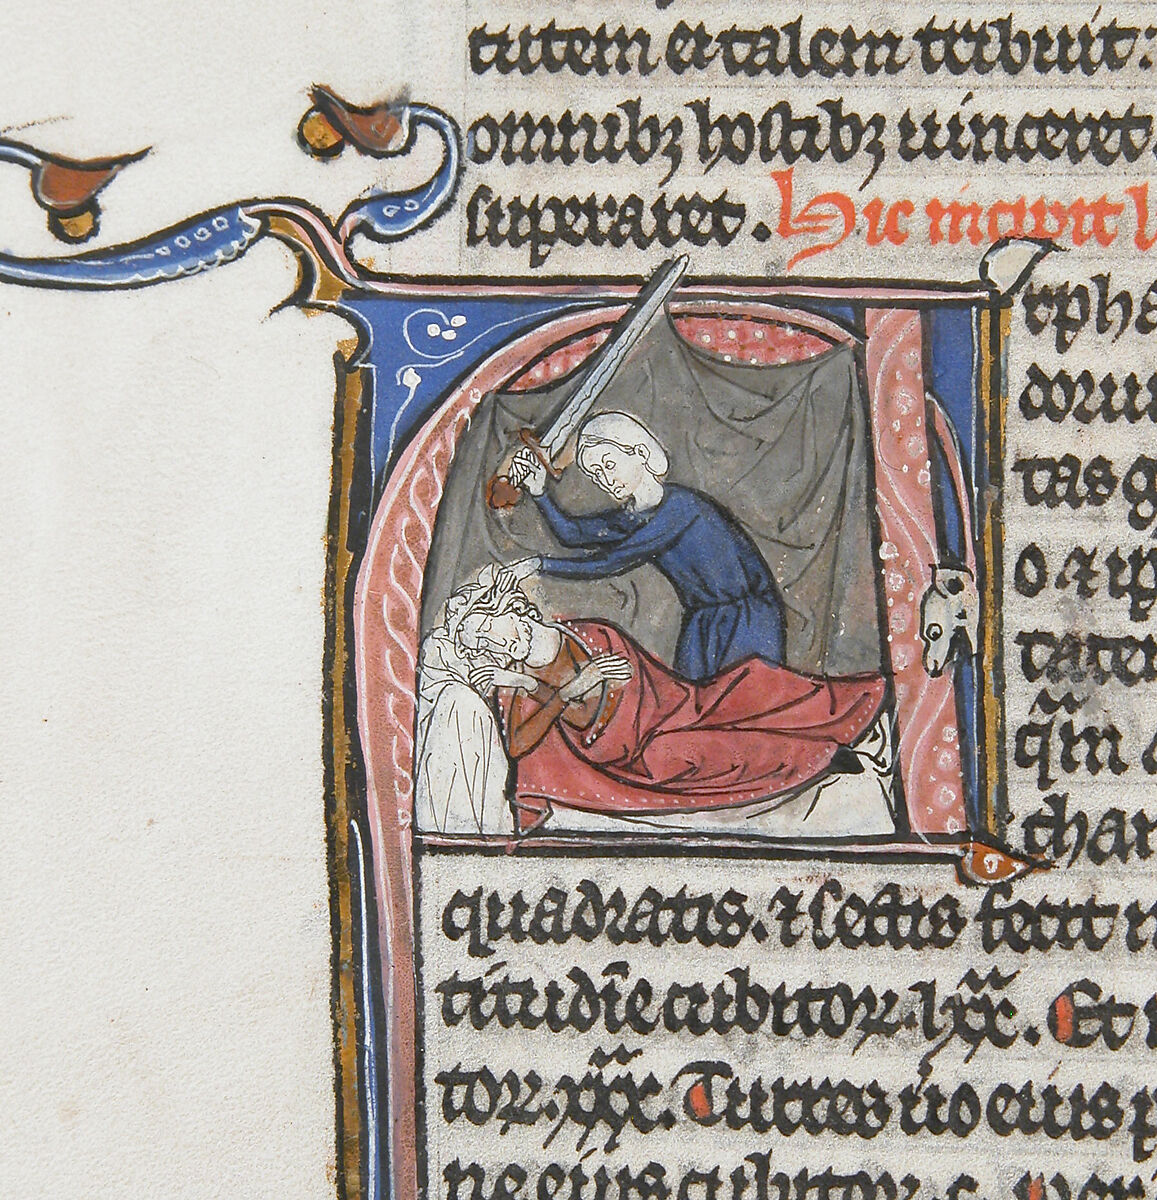 tutem et talem tribuit:
omnibꝫ hostibꝫ uinceret
superaret. Hic incipit l
A rpha
doru
tas g
o ⁊ ip
tatem
q̄m
char
quadratis. ⁊ sectis fecit
titudīe cubitoꝝ. lxx. Et
toꝝ. xxx. Turres ů̄o eius p
ne eius cubitoꝝ